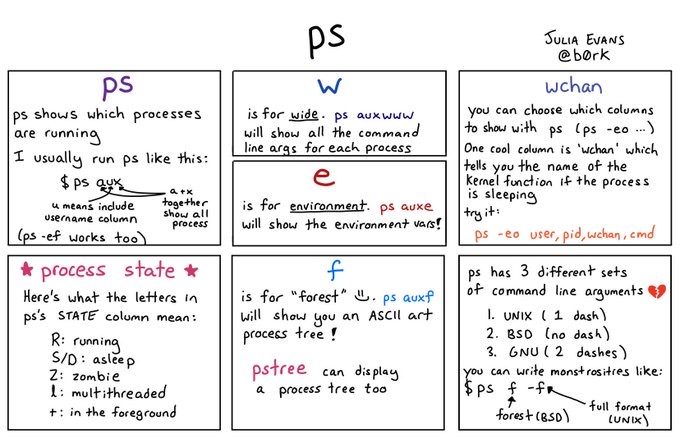 ps
JULIA EVANS
@b0rk
ps
ps shows which processes
are running
I usually run ps like this:
$ ps aux
u means include
username column
a+x
together
show all
process
(ps -ef works too)
w
is for wide. ps auxwww
will show all the command
line args for each process
e
is for environment. ps auxe
will show the environment vars!
wchan
you can choose which columns
to show with ps (ps -eo ...)
One cool column is 'wchan' which
tells you the name of the
Kernel function if the process
is sleeping
try it:
ps -eo user,pid,wchan,cmd
★ process state ★
Here's what the letters in
ps's STATE column mean:
R: running
S/D: asleep
Z: zombie
l: multithreaded
+: in the foreground
f
is for "forest" ☺. ps auxf
will show you an ASCII art
process tree!
pstree can display
a process tree too
ps has 3 different sets
of command line arguments 💔
1. UNIX (1 dash)
2. BSD (no dash)
3. GNU (2 dashes)
you can write monstrosities like:
$ ps f -f
forest (BSD)
full format
(UNIX)